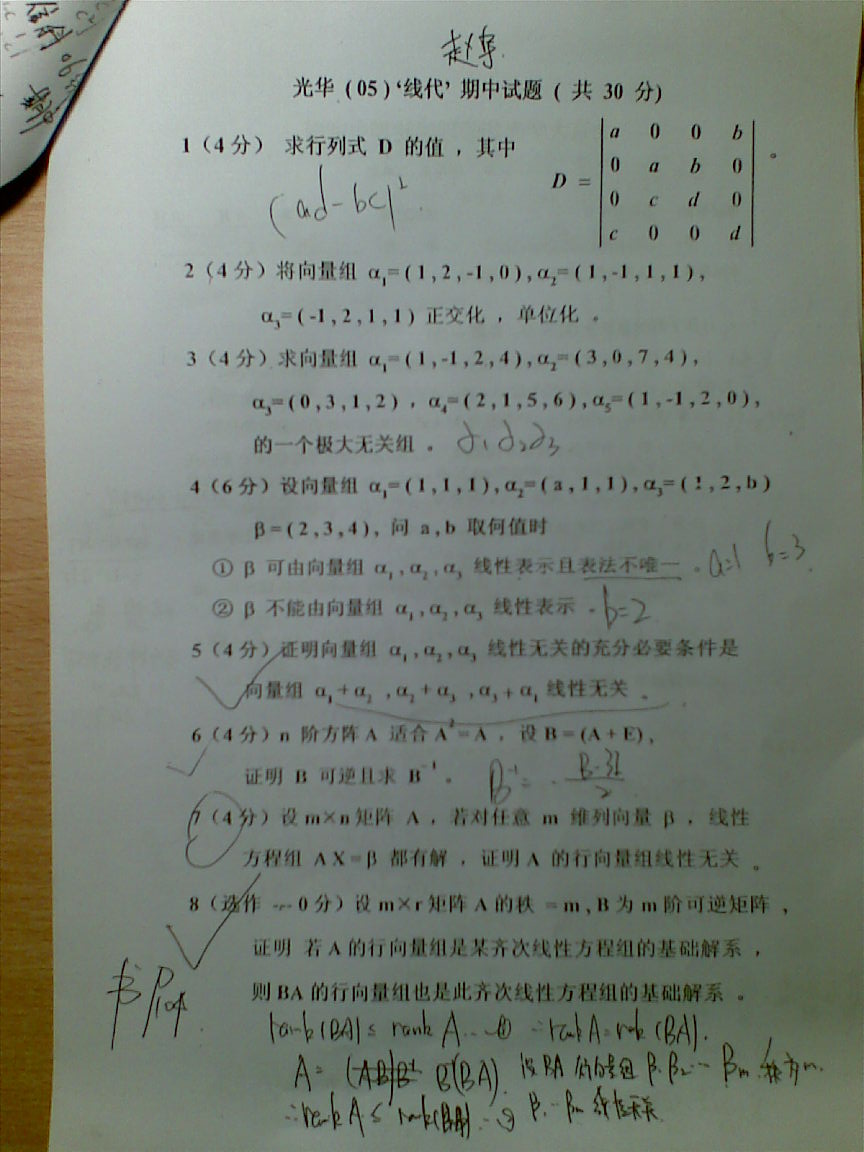 赵华
光华 ( 05 ) ‘线代’ 期中试题 ( 共 30 分)
1 ( 4 分 ) 求行列式 D 的值 , 其中
D =
a 0 0 b
0 a b 0
0 c d 0
c 0 0 d
。
(ad-bc)²
2 ( 4 分 ) 将向量组 α₁= ( 1 , 2 , -1 , 0 ) , α₂= ( 1 , -1 , 1 , 1 ) ,
α₃= ( -1 , 2 , 1 , 1 ) 正交化 , 单位化 。
3 ( 4 分 ) 求向量组 α₁= ( 1 , -1 , 2 , 4 ) , α₂= ( 3 , 0 , 7 , 4 ) ,
α₃= ( 0 , 3 , 1 , 2 ) , α₄= ( 2 , 1 , 5 , 6 ) , α₅= ( 1 , -1 , 2 , 0 ) ,
的一个极大无关组 。 α₁α₂α₃
4 ( 6 分 ) 设向量组 α₁= ( 1 , 1 , 1 ) , α₂= ( a , 1 , 1 ) , α₃= ( 1 , 2 , b )
β = ( 2 , 3 , 4 ) , 问 a , b 取何值时
① β 可由向量组 α₁ , α₂ , α₃ 线性表示且表法不唯一 。 a=1 b=3
② β 不能由向量组 α₁ , α₂ , α₃ 线性表示 . b=2
5 ( 4 分 ) 证明向量组 α₁ , α₂ , α₃ 线性无关的充分必要条件是
向量组 α₁+α₂ , α₂+α₃ , α₃+α₁ 线性无关 。
6 ( 4 分 ) n 阶方阵 A 适合 A²=A , 设 B = (A + E) ,
证明 B 可逆且求 B⁻¹ 。 B⁻¹= - B-3I / 2
7 ( 4 分 ) 设 m×n 矩阵 A , 若对任意 m 维列向量 β , 线性
方程组 AX=β 都有解 , 证明 A 的行向量组线性无关 。
8 ( 选作 0 分 ) 设 m×r 矩阵 A 的秩 = m , B 为 m 阶可逆矩阵 ,
证明 若 A 的行向量组是某齐次线性方程组的基础解系 ,
则 BA 的行向量组也是此齐次线性方程组的基础解系 。
书
rank(BA) ≤ rank A … ① ∴ rank A = rank (BA).
A = B(BA) 设 BA 的 β₁ β₂ … βm
∴ rank A ≤ rank(BA) … ② β₁ … βm 线性无关